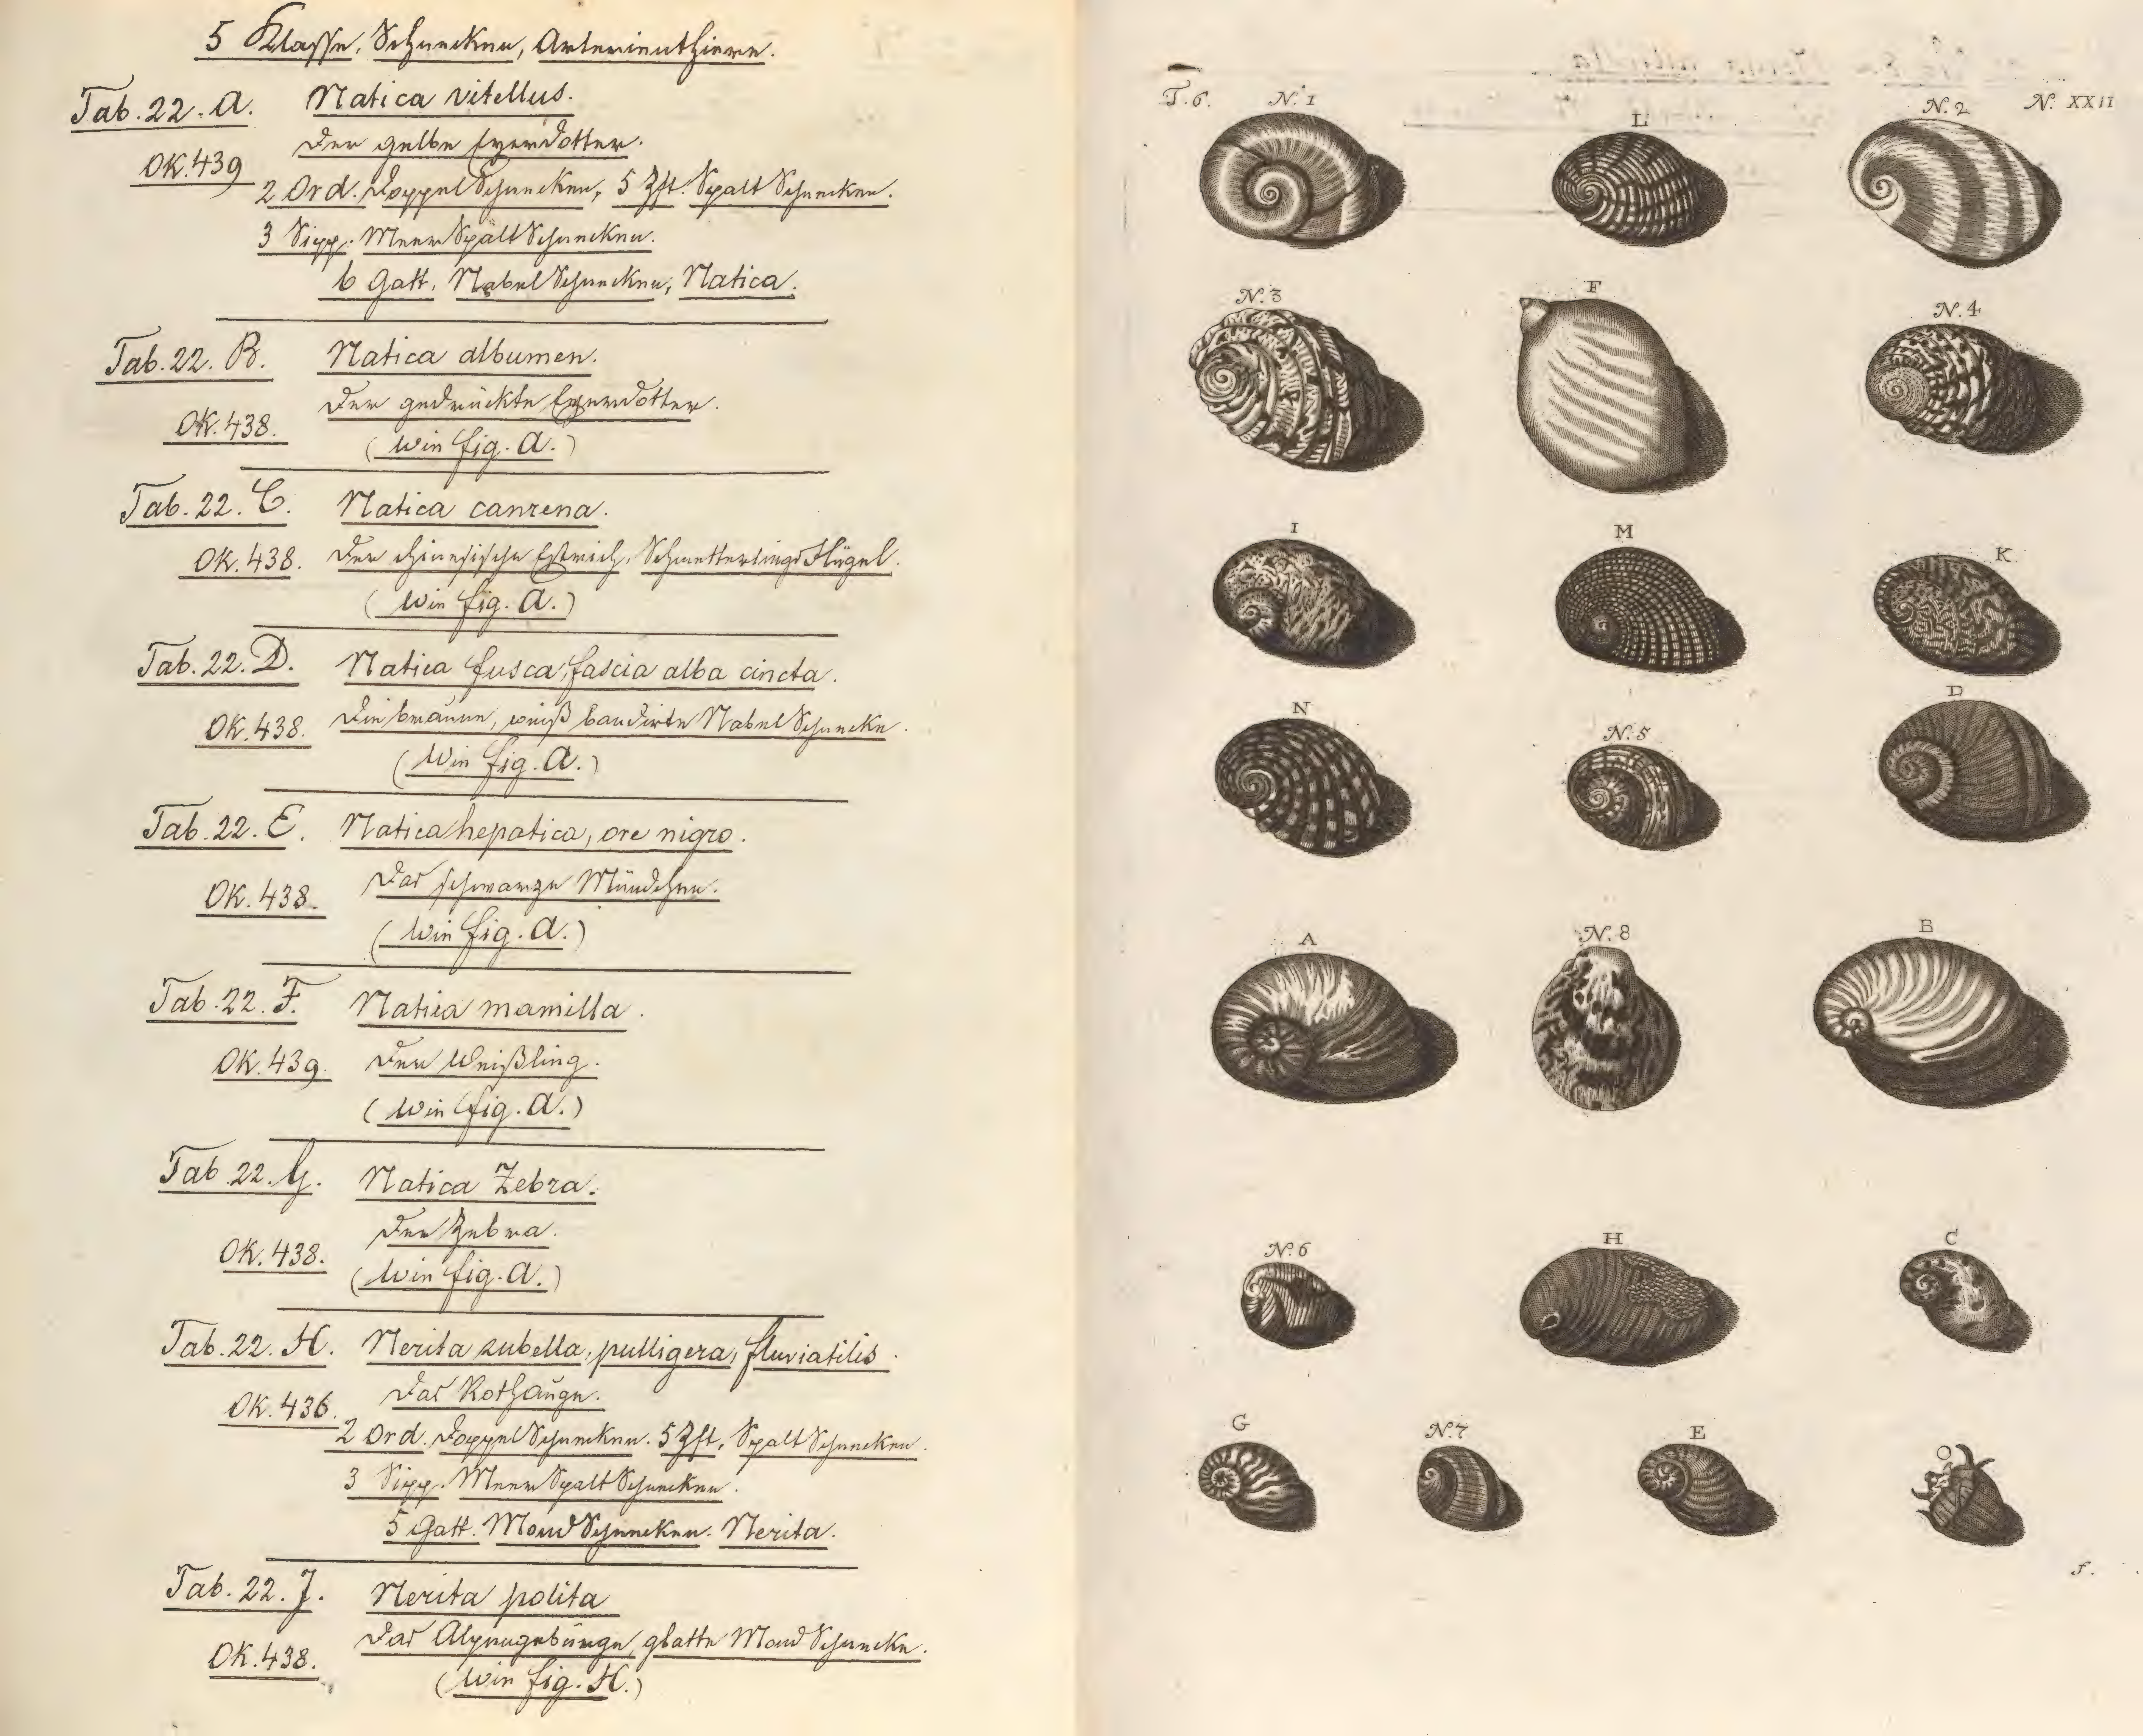 5 Klasse, Schnecken, Arterienthiere.
Tab. 22. A. Natica vitellus.
Der gelbe Eyerdotter.
OK. 439
2 Ord. Doppelschnecken, 5 Zft. Spaltschnecken.
3 Sipp. Meerspaltschnecken.
6 Gatt. Nabelschnecken, Natica.
Tab. 22. B. Natica albumen.
Der gedrückte Eyerdotter.
OK. 438.
(wie fig. A.)
Tab. 22. C. Natica canrena.
OK. 438. Der chinesische Estrich, Schmetterlingsflügel.
(wie fig. A.)
Tab. 22. D. Natica fusca, fascia alba cincta.
OK. 438. Die braune, weiß bandirte Nabelschnecke.
(wie fig. A.)
Tab. 22. E. Natica hepatica, ore nigro.
OK. 438. Das schwarze Mündchen.
(wie fig. A.)
Tab. 22. F. Natica mamilla.
OK. 439. Der Weißling.
(wie fig. A.)
Tab. 22. G. Natica Zebra.
Der Zebra.
OK. 438.
(wie fig. A.)
Tab. 22. H. Nerita rubella, pulligera, fluviatilis.
Das Rothauge.
OK. 436.
2 Ord. Doppelschnecken. 5 Zft. Spaltschnecken.
3 Sipp. Meerspaltschnecken.
5 Gatt. Mondschnecken. Nerita.
Tab. 22. J. Nerita polita
Das Alpengebürge, glatte Mondschnecke.
OK. 438.
(wie fig. H.)
T. 6. N. 1 L N. 2 N. XXII
N. 3 F N. 4
I M K
N N. 5 D
A N. 8 B
N. 6 H C
G N. 7 E O
f.